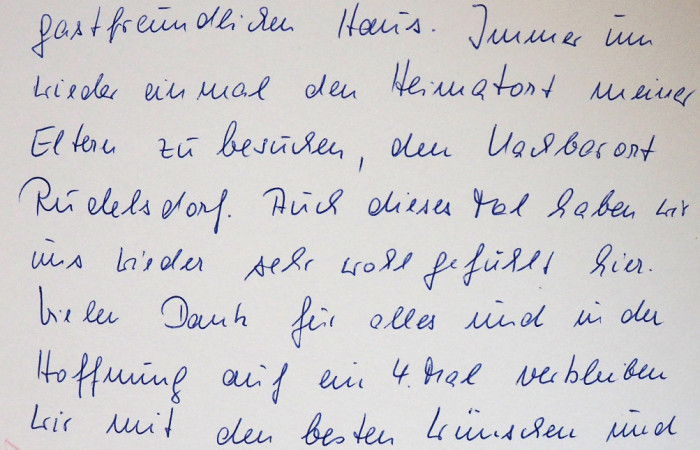 gastfreundlichen Haus. Immer um
wieder einmal den Heimatort meiner
Eltern zu besuchen, den Nachbarort
Rudelsdorf. Auch dieses Mal haben wir
uns wieder sehr wohl gefühlt hier.
Vielen Dank für alles und in der
Hoffnung auf ein 4. Mal verbleiben
wir mit den besten Wünschen und